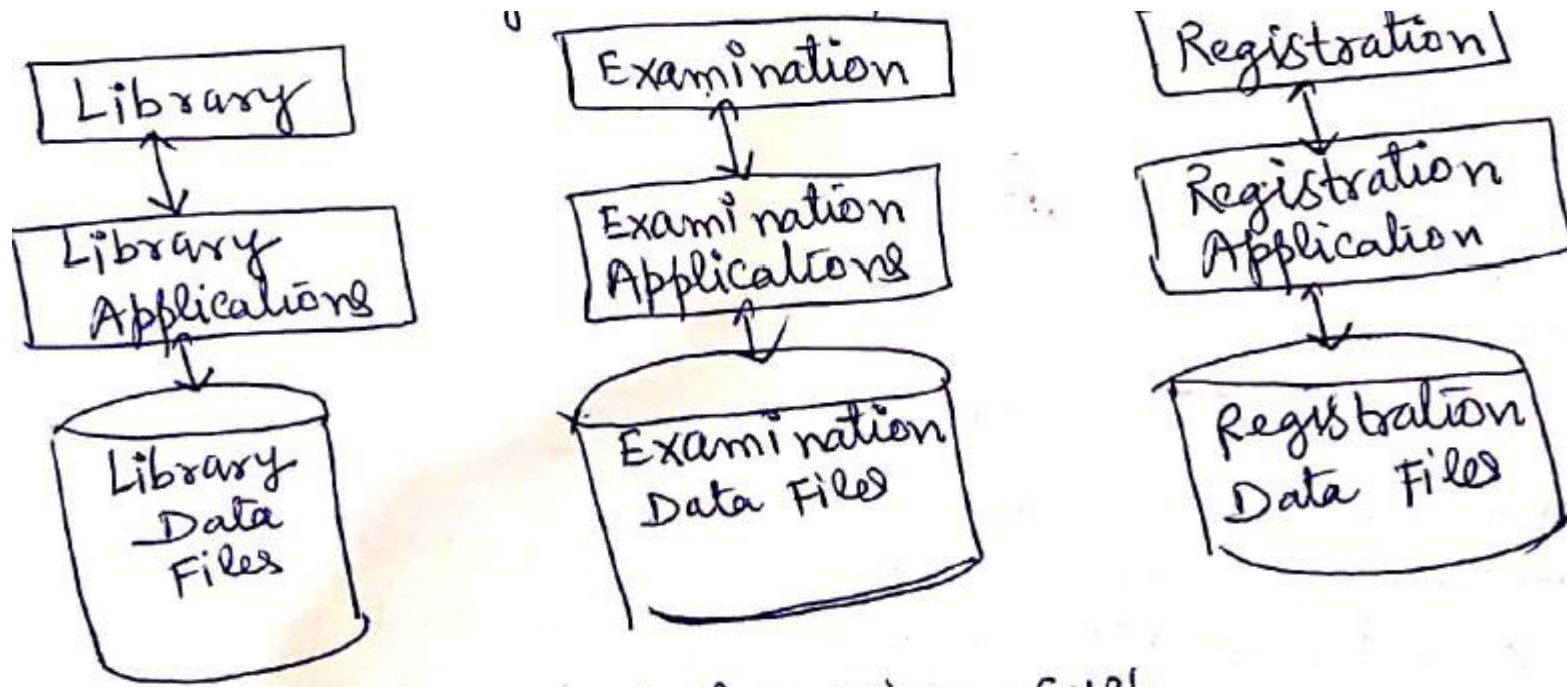 Library
Library
Applications
Library
Data
Files
Examination
Examination
Applications
Examination
Data Files
Registration
Registration
Application
Registration
Data Files